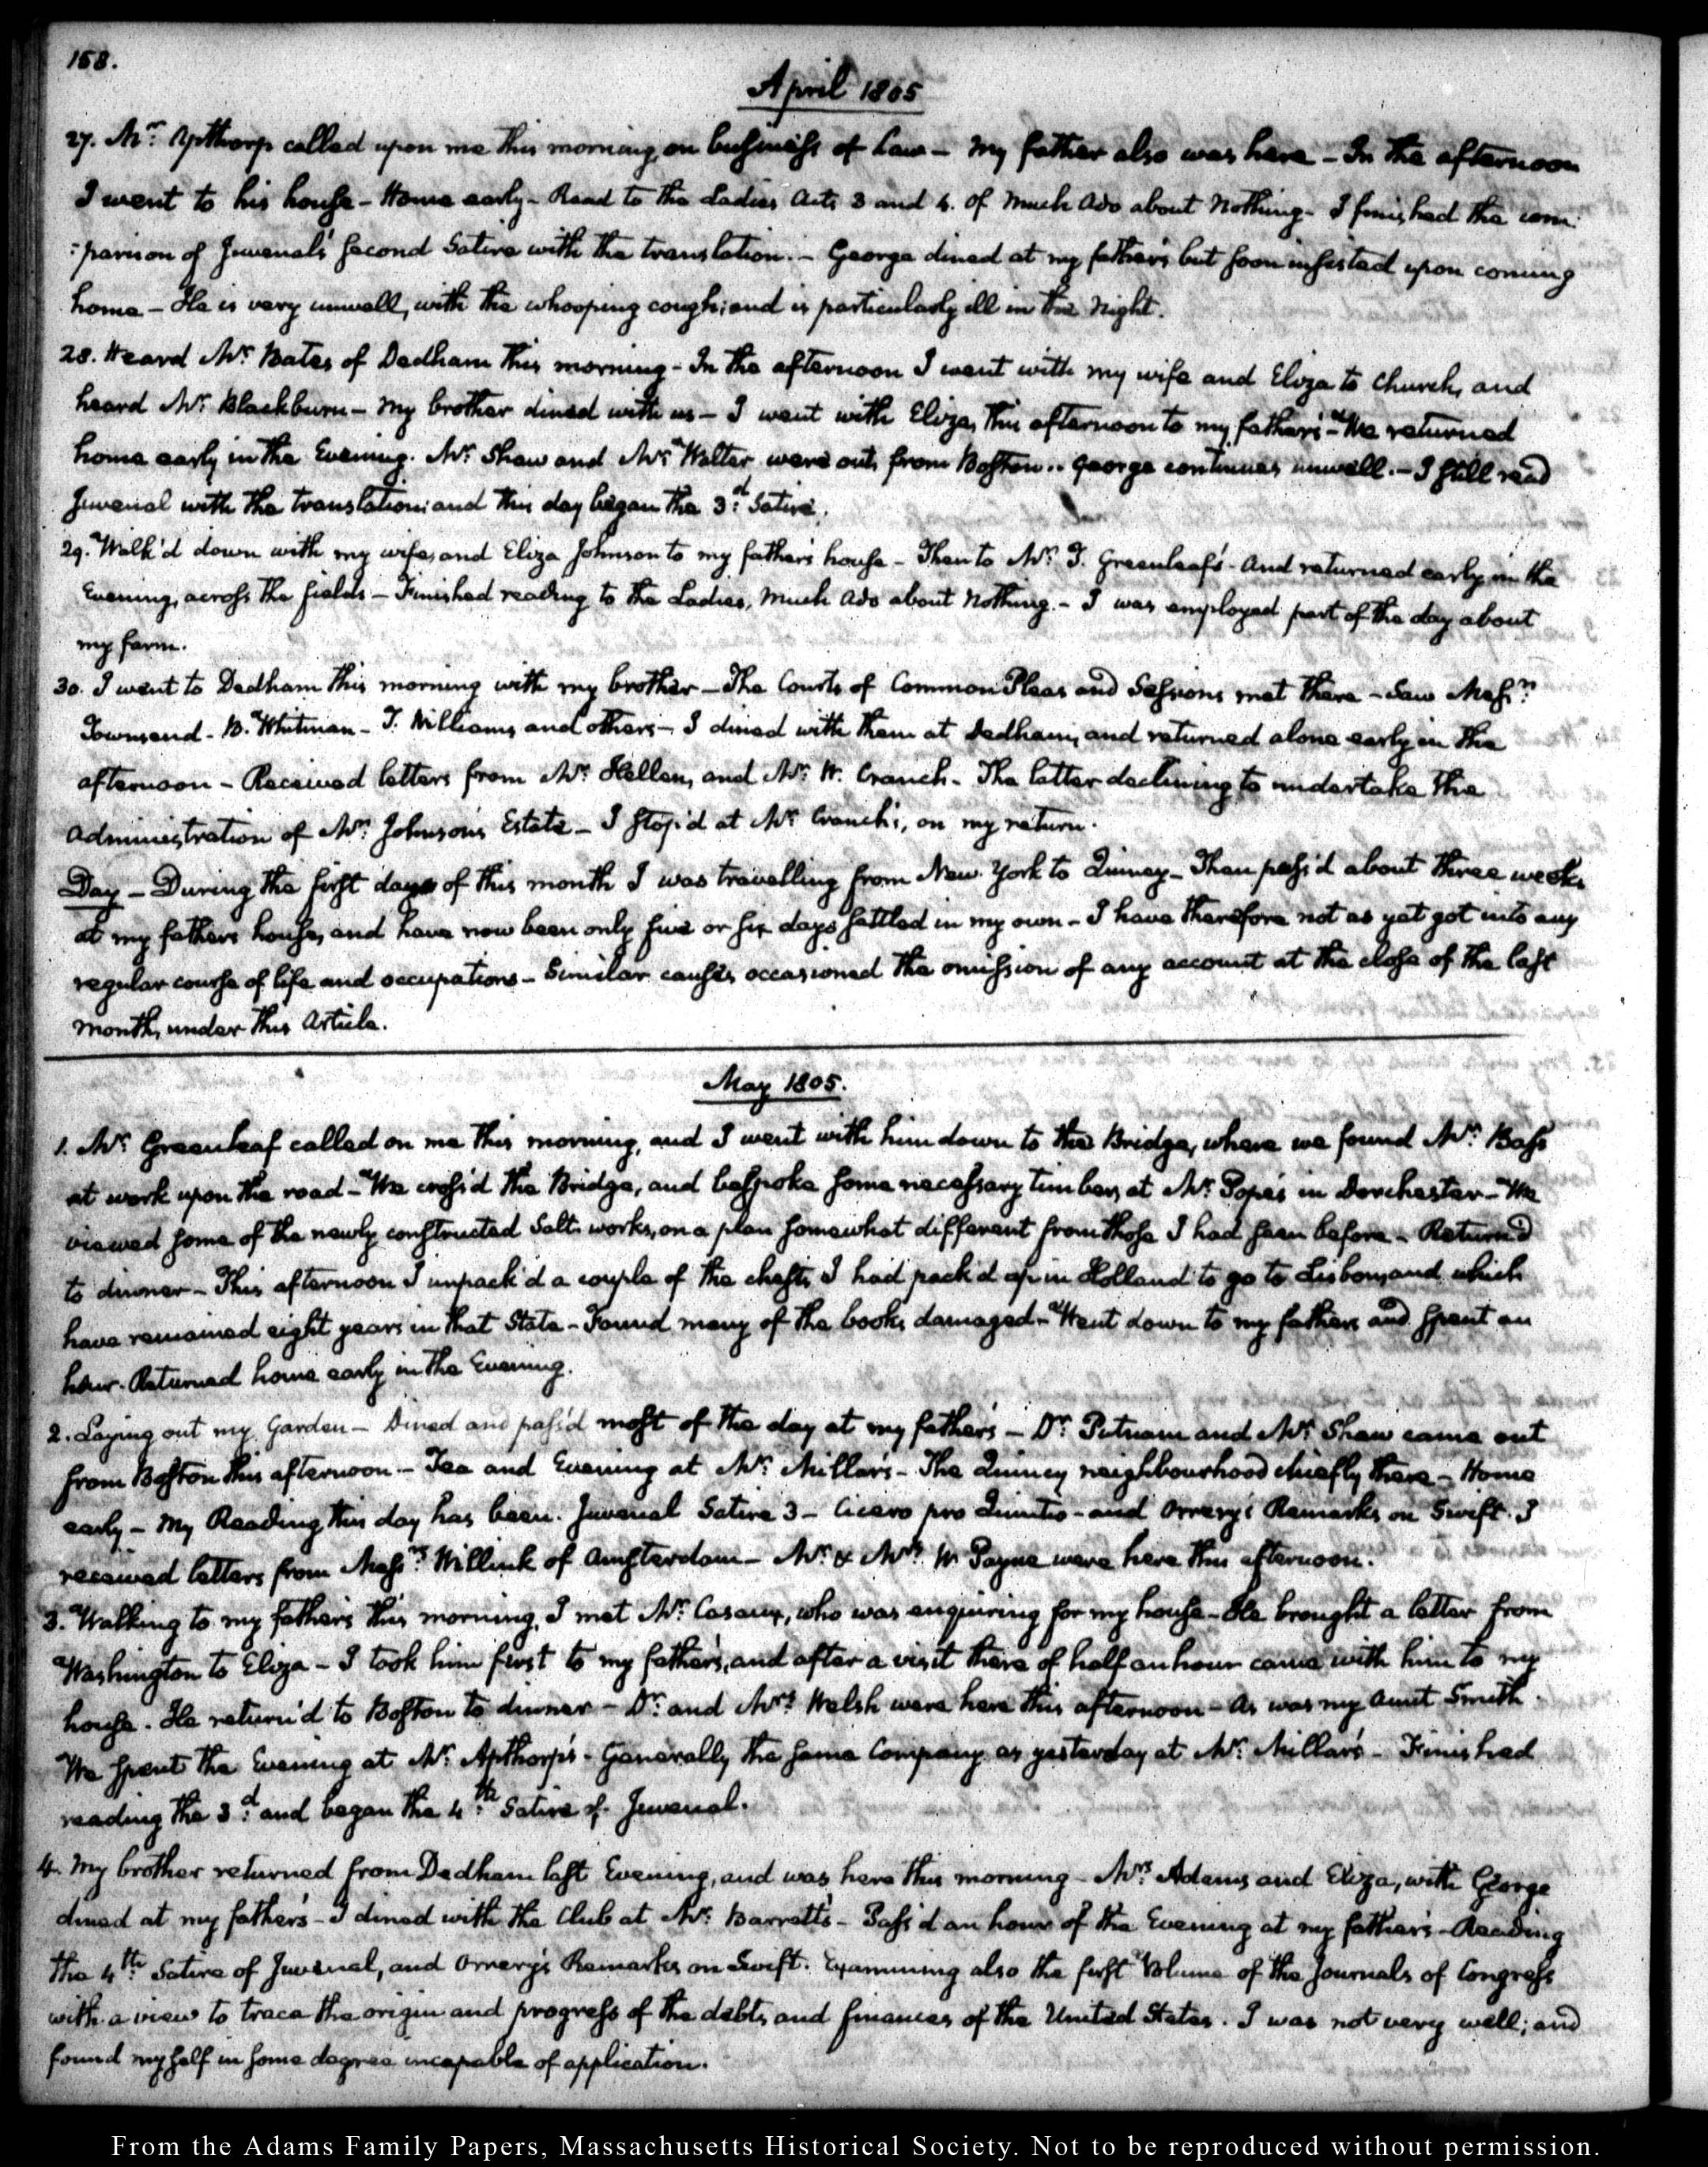 158.
April 1805
27. Mr: Apthorp called upon me this morning, on business of Law – My father also was here – In the afternoon
I went to his house – Home early – Read to the Ladies Acts 3 and 4. of Much Ado about Nothing – I finished the com:
:parison of Juvenal's second Satire with the translation. – George dined at my father's but soon insisted upon coming
home – He is very unwell, with the whooping cough; and is particularly ill in the Night.
28. Heard Mr: Bates of Dedham this morning – In the afternoon I went with my wife and Eliza to Church, and
heard Mr: Blackburn – My brother dined with us – I went with Eliza, this afternoon to my father's – We returned
home early in the Evening. Mr: Shaw and Mr: Walter were out, from Boston.. George continues unwell. – I still read
Juvenal with the translation: and this day began the 3:d Satire.
29. Walk'd down with my wife, and Eliza Johnson to my father's house – Then to Mr: T. Greenleaf's – And returned early in the
Evening, across the fields – Finished reading to the Ladies, Much Ado about Nothing. – I was employed part of the day about
my farm.
30. I went to Dedham this morning with my brother – The Courts of Common Pleas and Sessions met there – Saw Mess:rs
Townsend – B. Whitman – T. Williams and others – I dined with them at Dedham, and returned alone early in the
afternoon – Received letters from Mr: Hellen, and Mr: W. Cranch – The latter declining to undertake the
administration of Mr: Johnson's Estate – I stop'd at Mr: Cranch's, on my return.
Day – During the first days of this month I was travelling from New York to Quincy – Then pass'd about three weeks
at my father's house, and have now been only five or six days settled in my own – I have therefore not as yet got into any
regular course of life and occupations – Similar causes occasioned the omission of any account at the close of the last
month, under this Article.
May 1805.
1. Mr: Greenleaf called on me this morning, and I went with him down to the Bridge, where we found Mr: Bass
at work upon the road – We cross'd the Bridge, and bespoke some necessary timbers, at Mr: Pope's in Dorchester – We
viewed some of the newly constructed Salt works, on a plan somewhat different from those I had seen before – Return'd
to dinner – This afternoon I unpack'd a couple of the chests, I had pack'd up in Holland to go to Lisbon, and which
have remained eight years in that State – Found many of the books damaged – Went down to my father's and spent an
hour. Returned home early in the Evening.
2. Laying out my Garden – Dined and pass'd most of the day at my father's – Dr: Putnam and Mr: Shaw came out
from Boston this afternoon – Tea and Evening at Mr: Millar's – The Quincy neighbourhood chiefly there – Home
early – My Reading this day has been. Juvenal Satire 3 – Cicero pro Quintio – and Orrery's Remarks on Swift. I
received letters from Mess:rs Willink of Amsterdam – Mr: & Mrs: W. Payne were here this afternoon.
3. Walking to my father's this morning, I met Mr: Casaux, who was enquiring for my house – He brought a letter from
Washington to Eliza – I took him first to my father's, and after a visit there of half an hour came with him to my
house. He return'd to Boston to dinner – Dr: and Mrs: Welsh were here this afternoon – As was my Aunt Smith.
We spent the Evening at Mr: Apthorp's – Generally the same Company as yesterday at Mr: Millar's – Finished
reading the 3:d and began the 4:th Satire of Juvenal.
4. My brother returned from Dedham last Evening, and was here this morning – Mrs: Adams and Eliza, with George
dined at my father's – I dined with the Club at Mr: Barrett's – Pass'd an hour of the Evening at my father's – Reading
the 4:th Satire of Juvenal, and Orrery's Remarks on Swift. Examining also the first Volume of the Journals of Congress
with a view to trace the origin and progress of the debts, and finances of the United States. I was not very well; and
found myself in some degree incapable of application.
From the Adams Family Papers, Massachusetts Historical Society. Not to be reproduced without permission.